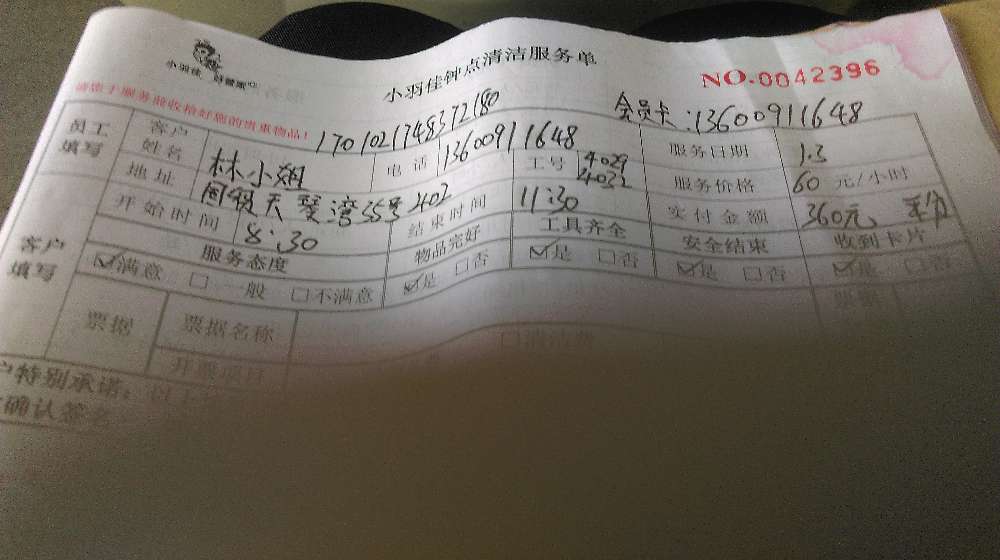 小羽佳 好管家
小羽佳钟点清洁服务单
NO.0042396
请您于服务前收拾好您的贵重物品!
1701021748372180
会员卡:13600911648
员工填写
客户姓名 林小娟 电话 13600911648 工号 4029 4032 服务日期 1.3
地址 天琴湾55号402 服务价格 60 元/小时
开始时间 8:30 结束时间 11:30 实付金额 360元
客户填写
服务态度 物品完好 工具齐全 安全结束 收到卡片
☑满意 □一般 □不满意 ☑是 □否 ☑是 □否 ☑是 □否 ☑是 □否
票据 票据名称 □清洁费
开票项目
户特别承诺:以上
确认签名